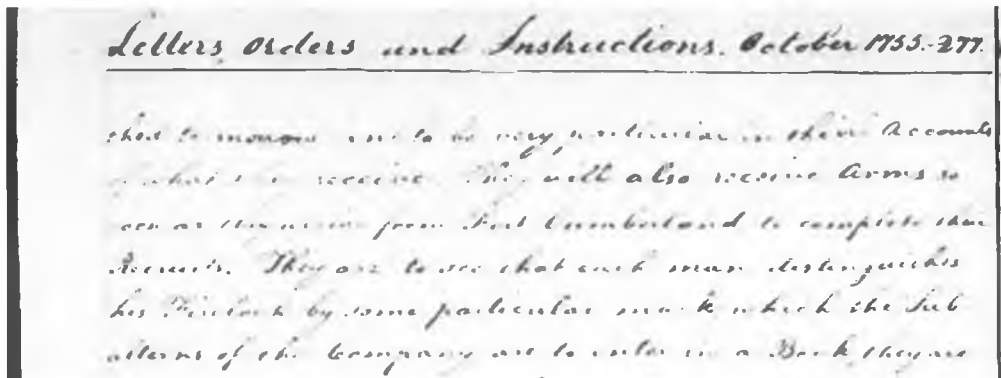 Letters, Orders and Instructions. October 1755. 277.
thes to morrow and to be very particular in their Accounts
of what they receive. They will also receive Arms so
soon as they arrive from Fort Cumberland to complete their
Recruits. They are to see that each man distinguishes
his Firelock by some particular mark which the Sub
alterns of the Company are to enter in a Book they are